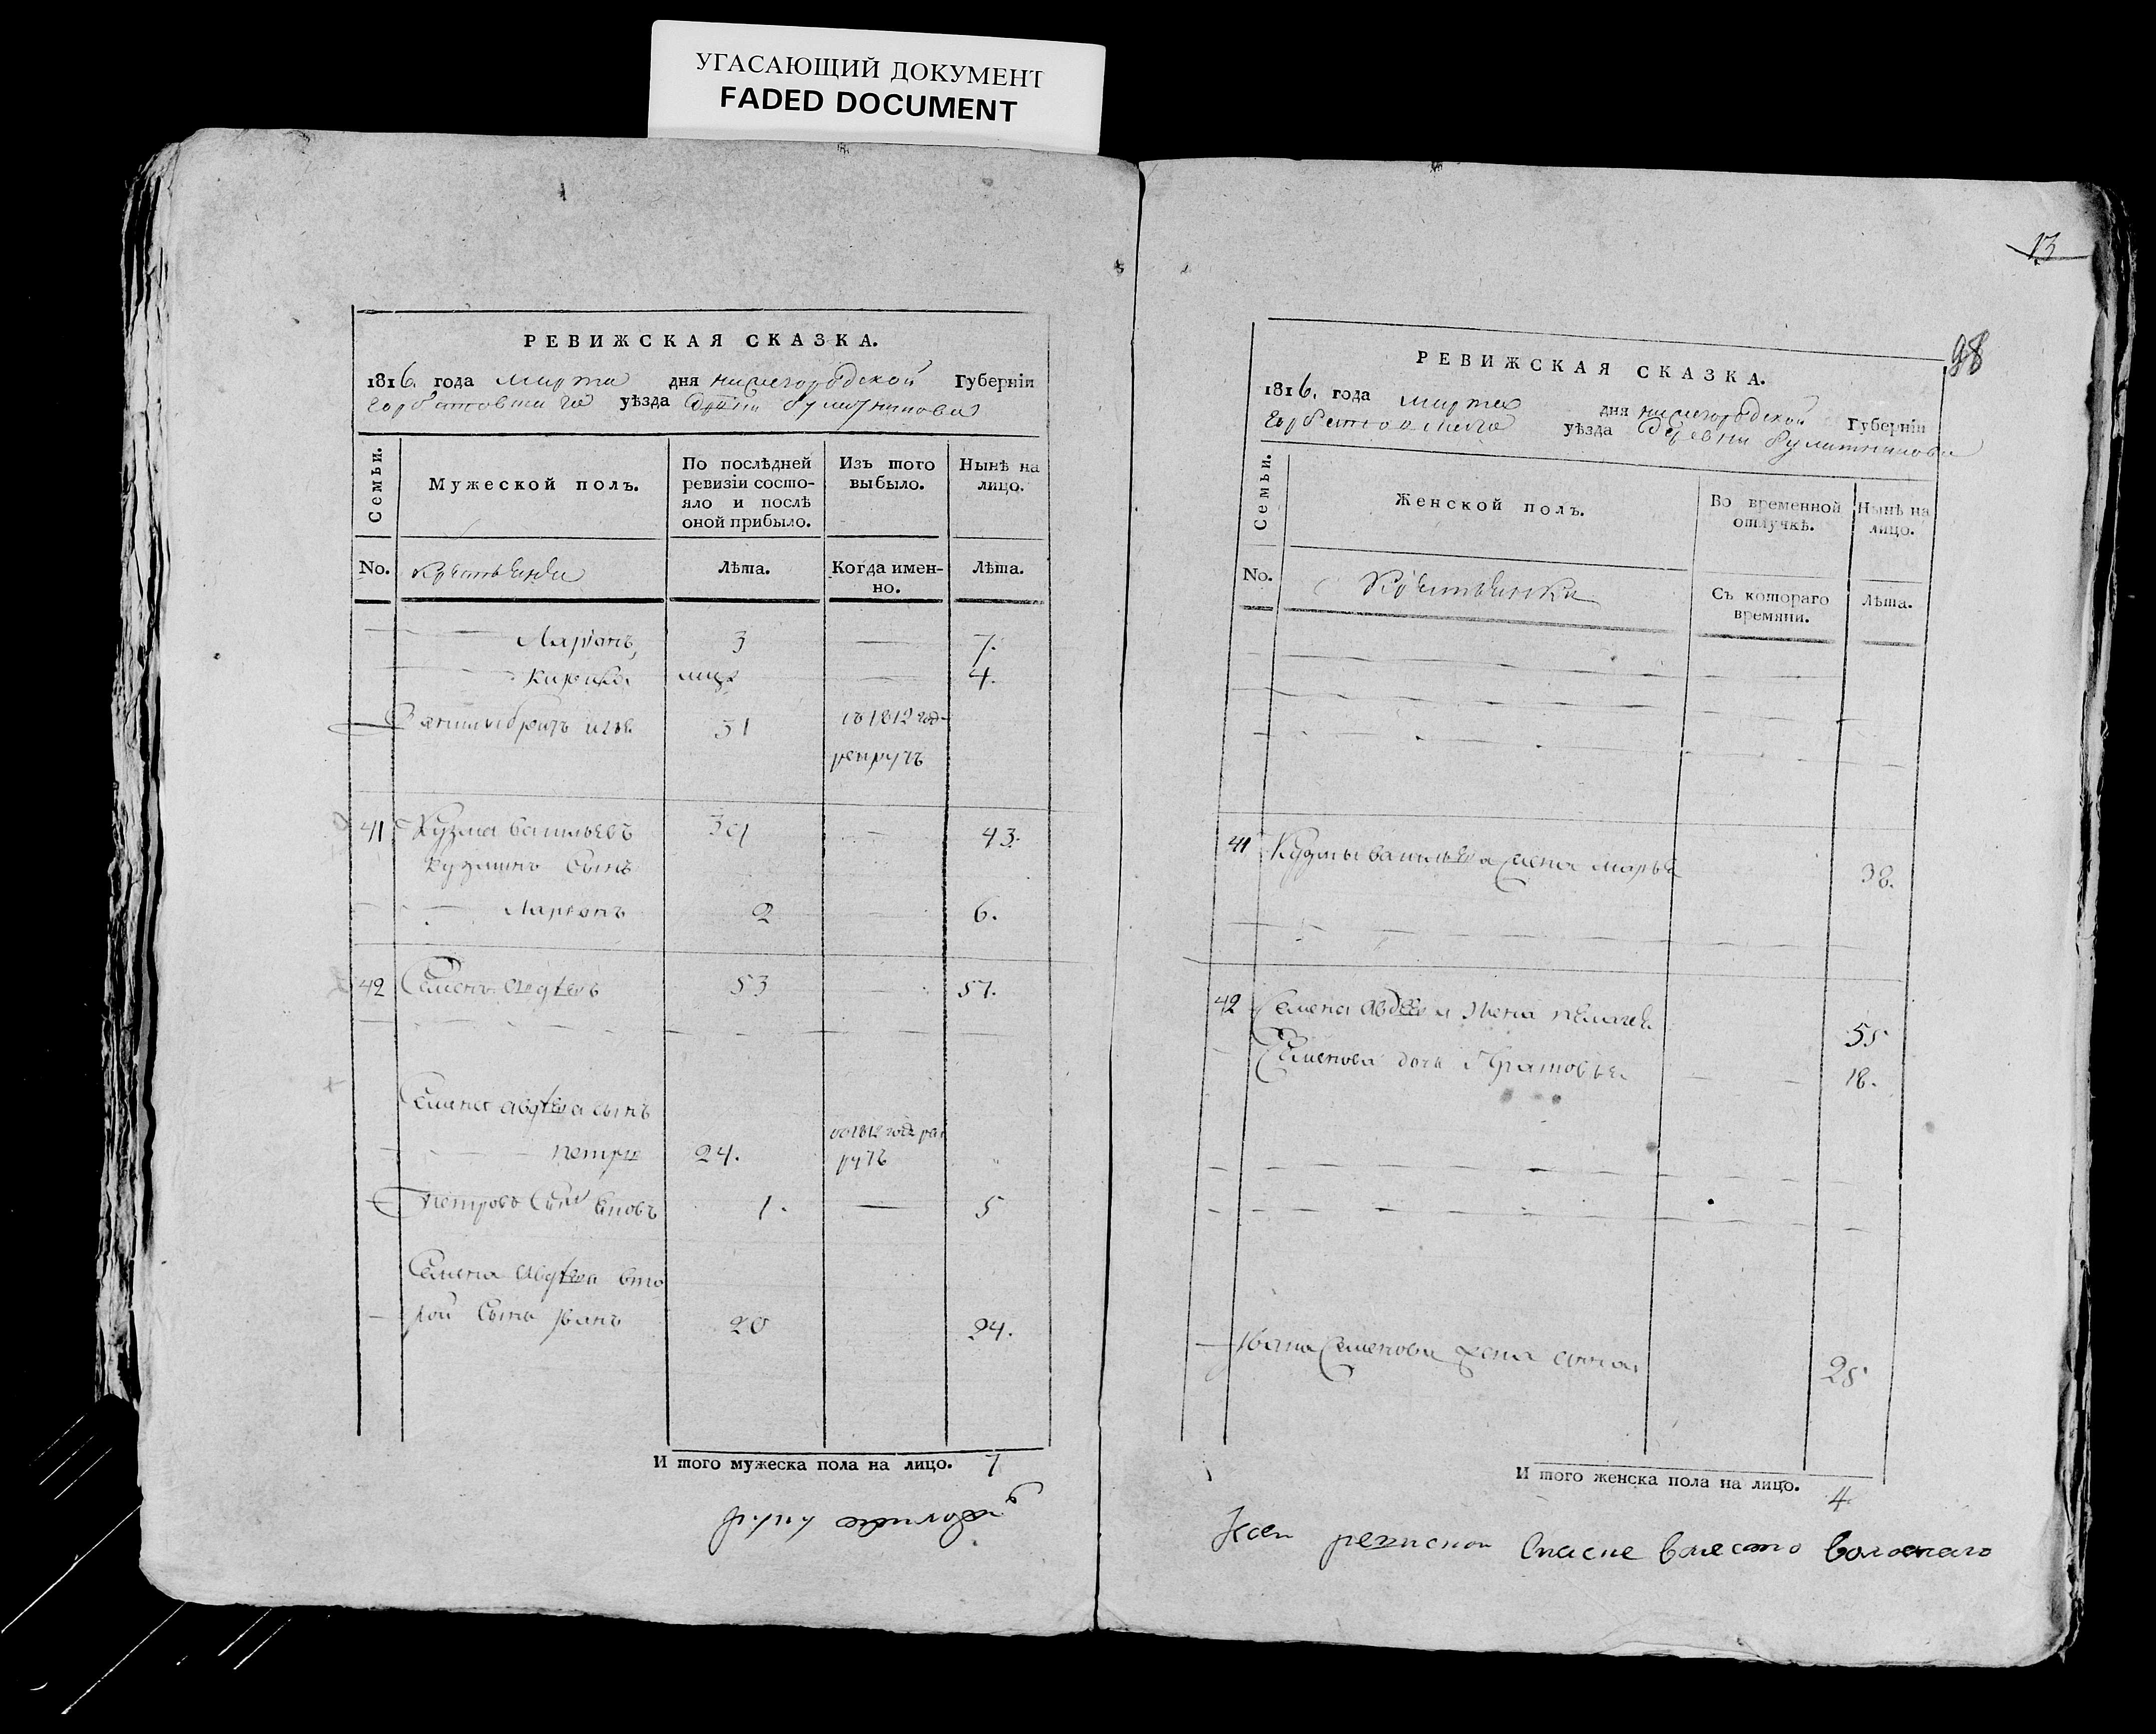 УГАСАЮЩИЙ ДОКУМЕНТ
FADED DOCUMENT
РЕВИЖСКАЯ СКАЗКА.
1816. года марта дня нижегородской Губерніи
горбатовскаго уѣзда
Семьи.
Мужеской полъ.
По послѣдней ревизіи состояло и послѣ оной прибыло.
Изъ того выбыло.
Нынѣ на лицо.
No.
крестьяне
Лѣта.
Когда именно.
Лѣта.
Ларіонъ 3 — 7.
4.
братъ 31 въ 1812 год
рекрутъ
41 Кузма васильевъ 39 — 43.
кузминъ сынъ
Ларіонъ 2 — 6.
42 Семенъ авдѣевъ 53 — 57.
Семена авдѣева сынъ
петръ 24. въ 1812 годе рек
рутъ
петровъ сынъ 1. — 5
Семена авдѣева вто
рой сынъ иванъ 20 24.
И того мужеска пола на лицо. 7
13
98
РЕВИЖСКАЯ СКАЗКА.
1816. года марта дня нижегородской Губерніи
горбатовскаго уѣзда деревни
Семьи.
Женской полъ.
Во временной отлучкѣ.
Нынѣ на лицо.
No.
Крестьянки
Съ котораго времяни.
Лѣта.
41 Кузмы васильева жена марья 38.
42 Семена авдѣева жена пелагея 55
Семенова дочь 18.
Ивана Семенова жена анна 25
И того женска пола на лицо. 4
ксей ревиской скаске вместо